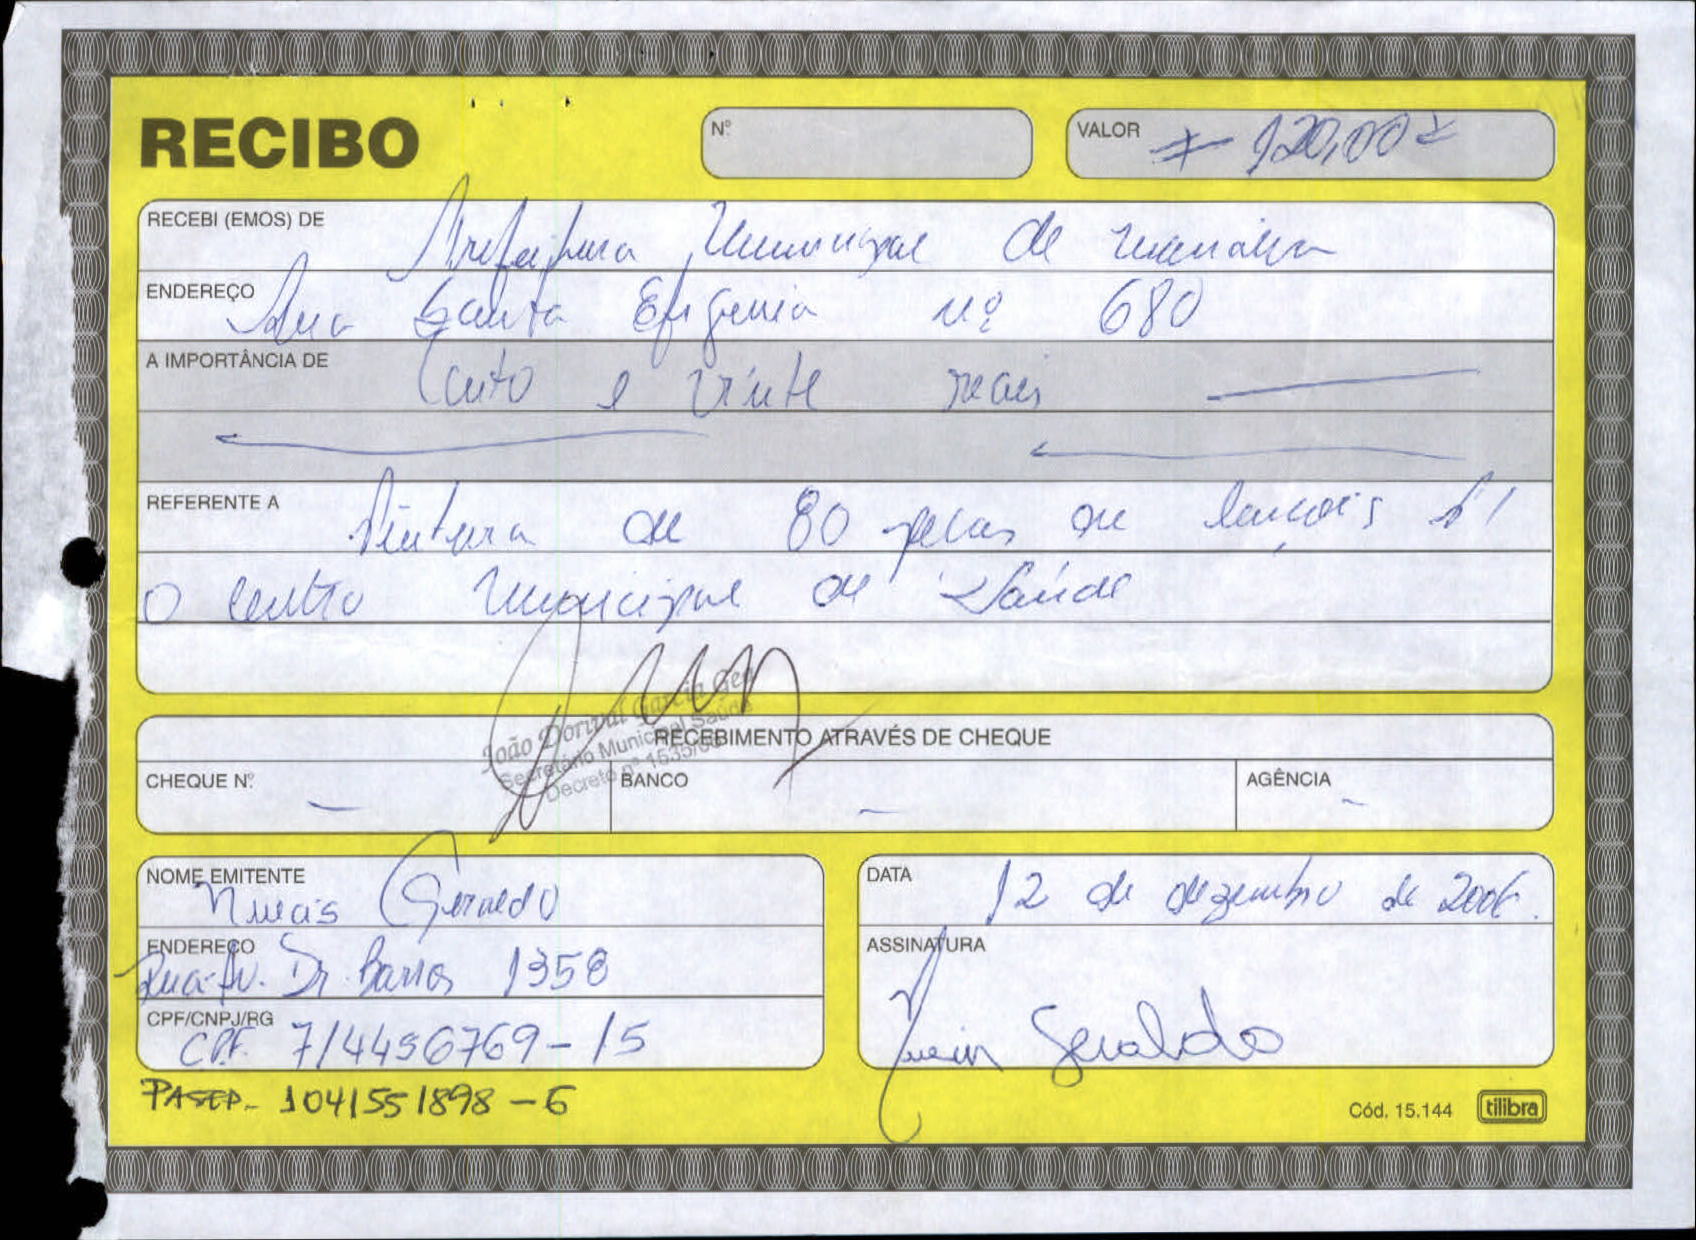 RECIBO
Nº
VALOR 120,00
RECEBI (EMOS) DE Prefeitura Municipal de
ENDEREÇO Rua Santa Efigenia nº 680
A IMPORTÂNCIA DE Cento e vinte reais
REFERENTE A Pintura de 80 peças de lençois p/
o Centro Municipal de Saúde
João Dorival Garcia
Secretário Municipal Saúde
Decreto nº
RECEBIMENTO ATRAVÉS DE CHEQUE
CHEQUE Nº
BANCO
AGÊNCIA
NOME EMITENTE Geraldo
ENDEREÇO Rua-Av. Dr. Barros 1358
CPF/CNPJ/RG CPF. 714456769-15
PASEP- 1041551898-6
DATA 12 de dezembro de 2006.
ASSINATURA
Geraldo
Cód. 15.144
tilibra